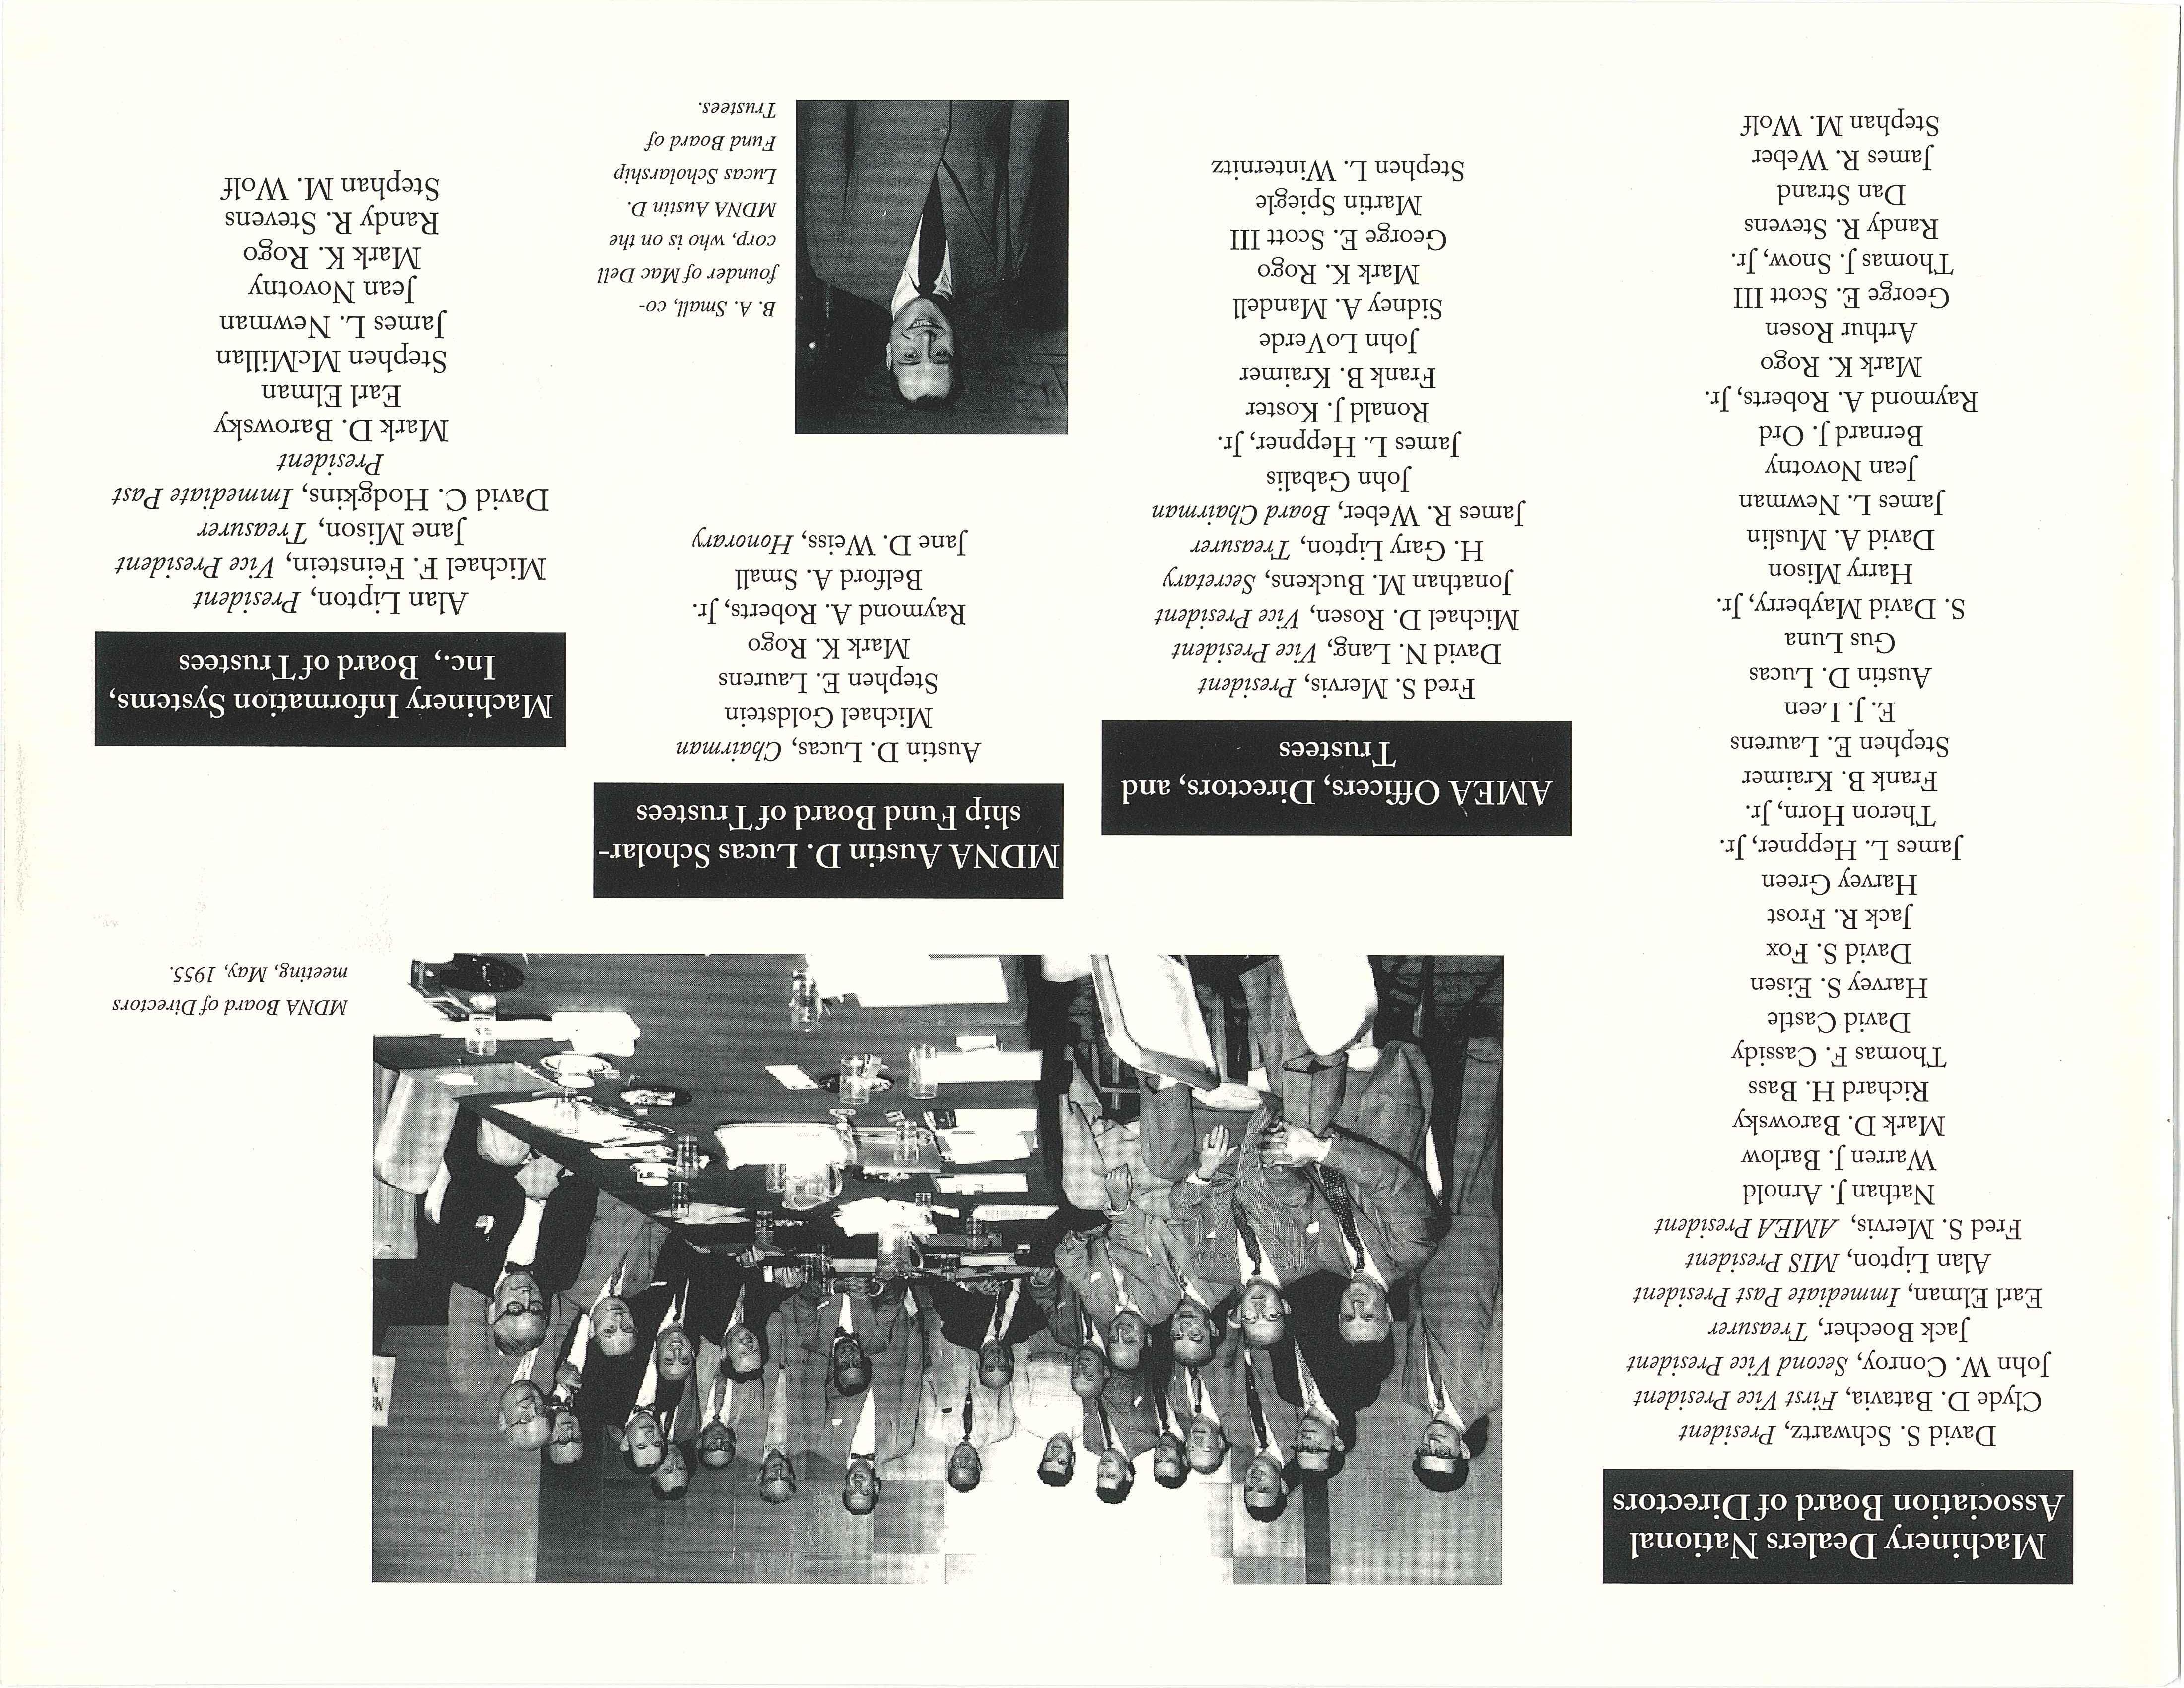 Machinery Dealers National
Association Board of Directors
David S. Schwartz, President
Clyde D. Batavia, First Vice President
John W. Conroy, Second Vice President
Jack Boecher, Treasurer
Earl Elman, Immediate Past President
Alan Lipton, MIS President
Fred S. Mervis, AMEA President
Nathan J. Arnold
Warren J. Barlow
Mark D. Barowsky
Richard H. Bass
Thomas F. Cassidy
David Castle
Harvey S. Eisen
David S. Fox
Jack R. Frost
Harvey Green
James L. Heppner, Jr.
Theron Horn, Jr.
Frank B. Kraimer
Stephen E. Laurens
E. J. Leen
Austin D. Lucas
Gus Luna
S. David Mayberry, Jr.
Harry Mison
David A. Muslin
James L. Newman
Jean Novotny
Bernard J. Ord
Raymond A. Roberts, Jr.
Mark K. Rogo
Arthur Rosen
George E. Scott III
Thomas J. Snow, Jr.
Randy R. Stevens
Dan Strand
James R. Weber
Stephan M. Wolf
MDNA Board of Directors
meeting, May, 1955.
AMEA Officers, Directors, and
Trustees
Fred S. Mervis, President
David N. Lang, Vice President
Michael D. Rosen, Vice President
Jonathan M. Buckens, Secretary
H. Gary Lipton, Treasurer
James R. Weber, Board Chairman
John Gabalis
James L. Heppner, Jr.
Ronald J. Koster
Frank B. Kraimer
John LoVerde
Sidney A. Mandell
Mark K. Rogo
George E. Scott III
Martin Spiegle
Stephen L. Winternitz
MDNA Austin D. Lucas Scholar-
ship Fund Board of Trustees
Austin D. Lucas, Chairman
Michael Goldstein
Stephen E. Laurens
Mark K. Rogo
Raymond A. Roberts, Jr.
Belford A. Small
Jane D. Weiss, Honorary
B. A. Small, co-
founder of Mac Dell
corp, who is on the
MDNA Austin D.
Lucas Scholarship
Fund Board of
Trustees.
Machinery Information Systems,
Inc., Board of Trustees
Alan Lipton, President
Michael F. Feinstein, Vice President
Jane Mison, Treasurer
David C. Hodgkins, Immediate Past
President
Mark D. Barowsky
Earl Elman
Stephen McMillan
James L. Newman
Jean Novotny
Mark K. Rogo
Randy R. Stevens
Stephan M. Wolf